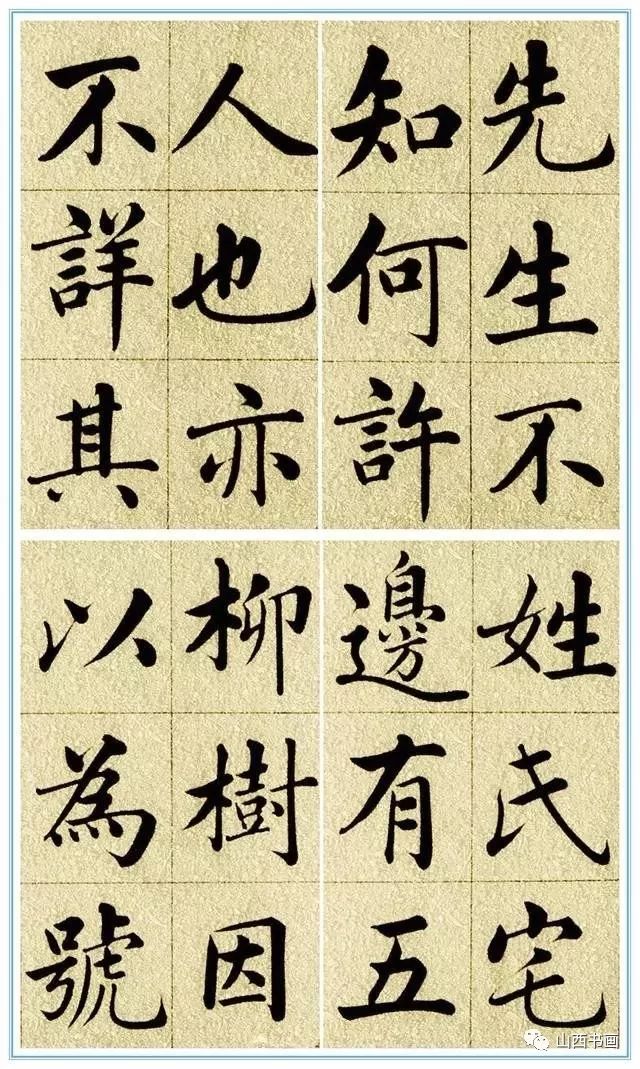 先生不
知何許
人也亦
不詳其
姓氏宅
邊有五
柳樹因
以為號
山西书画